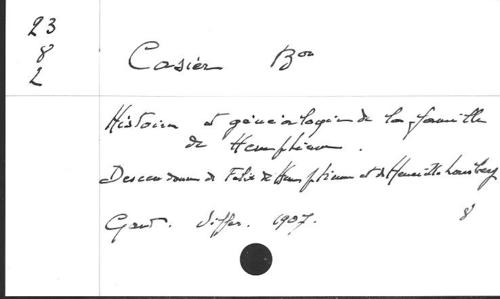 23
8
2
Casier Bon
Histoire et généalogie de la famille
de Hemptinne.
Descendance de Félix de Hemptinne et de Henriette Lousberg
Gand. Siffer. 1907. 8